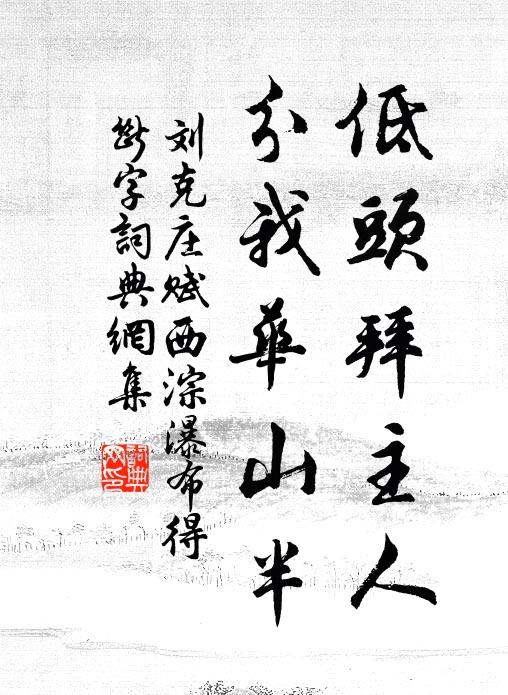 低頭拜主人
分我華山半
刘克庄赋西淙瀑布得
斷字詞典網集
詞典网印